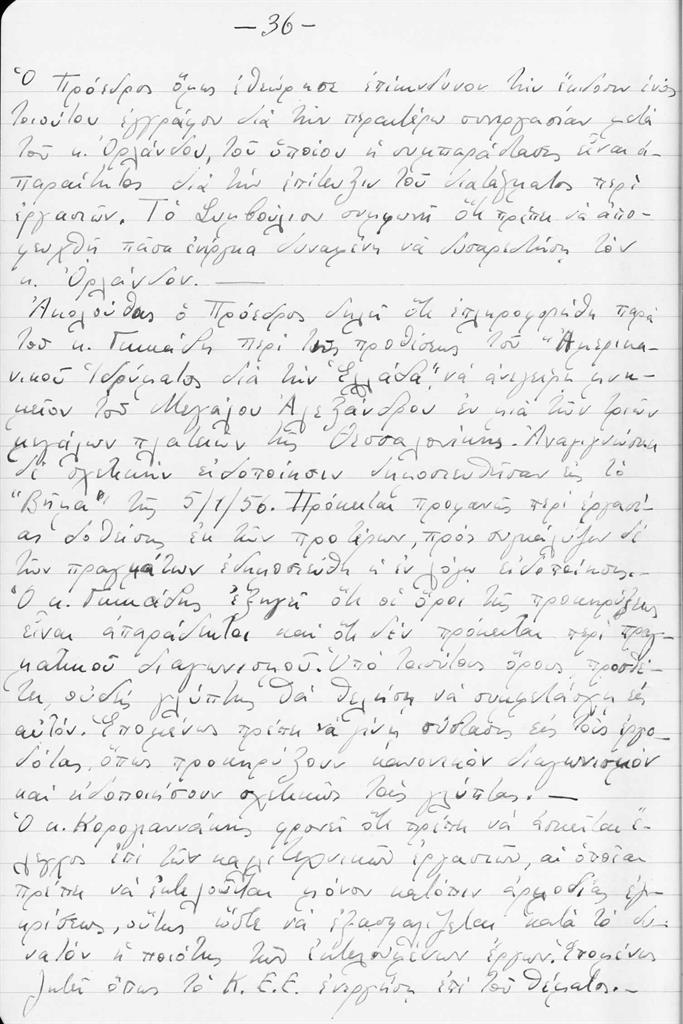 - 36 -
Ὁ Πρόεδρος ὅμως ἐθεώρησε ἐπικίνδυνον τὴν ἔκδοσιν ἑνὸς
τοιούτου ἐγγράφου διὰ τὴν περαιτέρω συνεργασίαν μετὰ
τοῦ κ. Ὀρλάνδου, τοῦ ὁποίου ἡ συμπαράστασις εἶναι ἀ-
παραίτητος διὰ τὴν ἐπίτευξιν τοῦ διατάγματος περὶ
ἐργασιῶν. Τὸ Συμβούλιον συμφωνεῖ ὅτι πρέπει νὰ ἀπο-
φευχθῇ πᾶσα ἐνέργεια δυναμένη νὰ δυσαρεστήσῃ τὸν
κ. Ὀρλάνδον. —
Ἀκολούθως ὁ Πρόεδρος δηλεῖ ὅτι ἐπληροφορήθη παρὰ
τοῦ κ. Γεωργιάδη περὶ τῆς προθέσεως τοῦ "Ἀμερικα-
νικοῦ Ἱδρύματος διὰ τὴν Ἑλλάδα", νὰ ἀνεγείρῃ μνη-
μεῖον τοῦ Μεγάλου Ἀλεξάνδρου ἐν μιᾷ τῶν τριῶν
μεγάλων πλατειῶν τῆς Θεσσαλονίκης. Ἀναγιγνώσκει
δὲ σχετικὴν εἰδοποίησιν δημοσιευθεῖσαν εἰς τὸ
"Βῆμα" τῆς 5/1/56. Πρόκειται προφανῶς περὶ ἐργασί-
ας δοθείσης ἐκ τῶν προτέρων, πρὸς συγκάλυψιν δὲ
τῶν πραγμάτων ἐδημοσιεύθη ἡ ἐν λόγῳ εἰδοποίησις.-
Ὁ κ. ἐξηγεῖ ὅτι οἱ ὅροι τῆς προκηρύξεως
εἶναι ἀπαράδεκτοι καὶ ὅτι δὲν πρόκειται περὶ πραγ-
ματικοῦ διαγωνισμοῦ. Ὑπὸ τοιούτους ὅρους, προσθέ-
τει, οὐδεὶς γλύπτης θὰ θελήσῃ νὰ συμμετάσχῃ εἰς
αὐτόν. Ἑπομένως πρέπει νὰ γίνῃ σύστασις εἰς τοὺς ἐργο-
δότας, ὅπως προκηρύξουν κανονικὸν διαγωνισμὸν
καὶ εἰδοποιήσουν σχετικῶς τοὺς γλύπτας. —
Ὁ κ. Κορογιαννάκης φρονεῖ ὅτι πρέπει νὰ ἀσκεῖται ἔ-
λεγχος ἐπὶ τῶν καλλιτεχνικῶν ἐργασιῶν, αἱ ὁποῖαι
πρέπει νὰ ἐκτελοῦνται μόνον κατόπιν ἁρμοδίας ἐγ-
κρίσεως, οὕτως ὥστε νὰ ἐξασφαλίζεται κατὰ τὸ δυ-
νατὸν ἡ ποιότης τῶν ἐκτελουμένων ἔργων. Ἑπομένως
ζητεῖ ὅπως τὸ Κ.Ε.Ε. ἐνεργήσῃ ἐπὶ τοῦ θέματος.-